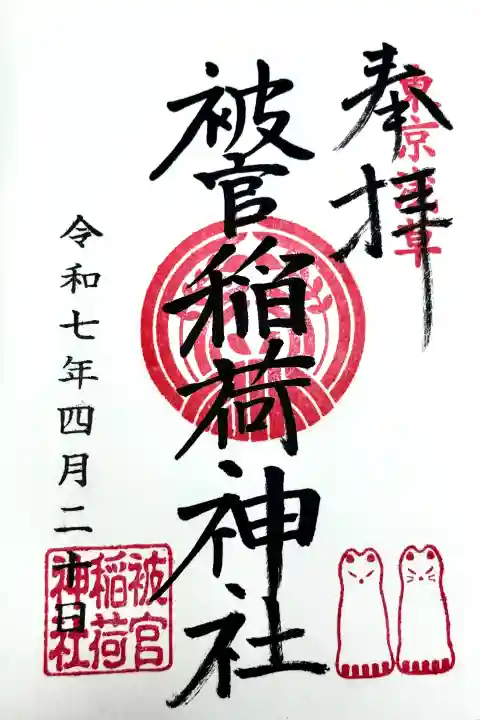 奉拝
東京浅草
被官稲荷神社
令和七年四月二十日
被官
稲荷
神社